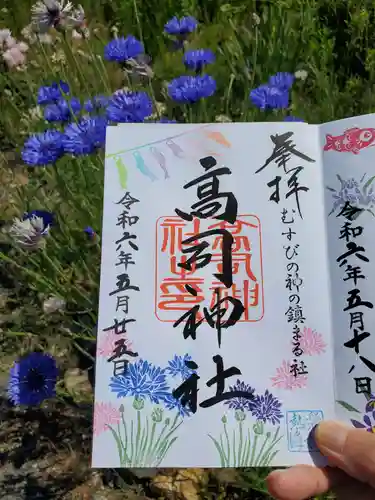 奉拝
むすびの神の鎮まる社
高司神社
高司神社之印
令和六年五月廿五日
令和六年五月十八日